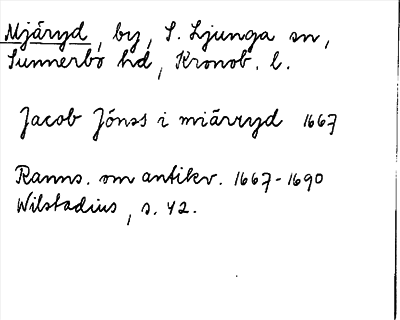 Mjäryd, by, S. Ljunga sn,
Sunnerbo hd, Kronob. l.
Jacob Jönss i miärryd 1667
Ranns. om antikv. 1667-1690
Wilstadius, s. 42.